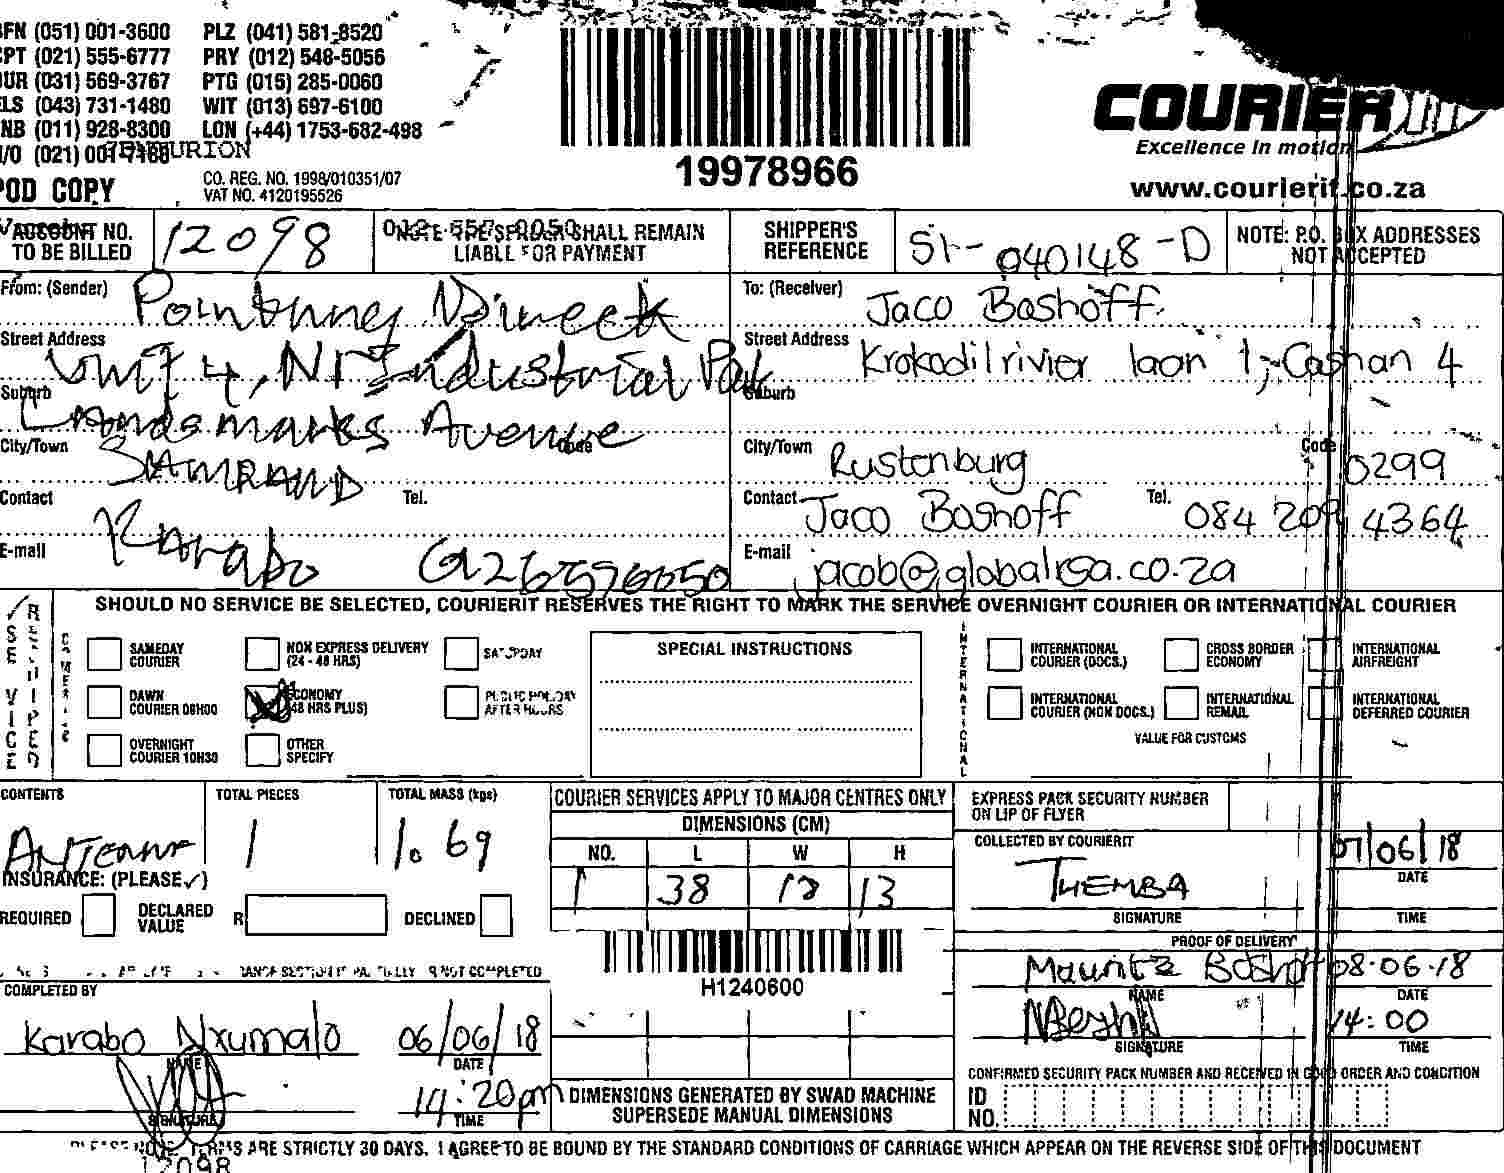 BFN (051) 001-3600 PLZ (041) 581-8520
CPT (021) 555-6777 PRY (012) 548-5056
DUR (031) 569-3767 PTG (015) 285-0060
ELS (043) 731-1480 WIT (013) 697-6100
JNB (011) 928-8300 LON (+44) 1753-682-498
H/O (021) 001-7168
CENTURION
POD COPY
CO. REG. NO. 1998/010351/07
VAT NO. 4120195526
19978966
COURIERIT
Excellence in motion
www.courierit.co.za
ACCOUNT NO.
TO BE BILLED
12098
012 657 0050
NOTE THE SENDER SHALL REMAIN
LIABLE FOR PAYMENT
SHIPPER'S
REFERENCE
SI-040148-D
NOTE: P.O. BOX ADDRESSES
NOT ACCEPTED
From: (Sender)
To: (Receiver) Jaco Boshoff
Street Address Unit 4, N1 Industrial Park
Street Address Krokodilrivier laan 1, Cashan 4
Suburb Landsmarks Avenue
Suburb
City/Town SAMRAND Code
City/Town Rustenburg Code 0299
Contact Karabo Tel.
Contact Jaco Boshoff Tel. 084 209 4364
E-mail
E-mail jacob@globalrsa.co.za
SERVICE REQUIRED
SHOULD NO SERVICE BE SELECTED, COURIERIT RESERVES THE RIGHT TO MARK THE SERVICE OVERNIGHT COURIER OR INTERNATIONAL COURIER
SAMEDAY
COURIER
NON EXPRESS DELIVERY
(24 - 48 HRS)
SATURDAY
DAWN
COURIER 08H00
ECONOMY
(48 HRS PLUS)
PUBLIC HOLIDAY
AFTER HOURS
OVERNIGHT
COURIER 10H30
OTHER
SPECIFY
SPECIAL INSTRUCTIONS
INTERNATIONAL
INTERNATIONAL
COURIER (DOCS.)
CROSS BORDER
ECONOMY
INTERNATIONAL
AIRFREIGHT
INTERNATIONAL
COURIER (NON DOCS.)
INTERNATIONAL
REMAIL
INTERNATIONAL
DEFERRED COURIER
VALUE FOR CUSTOMS
CONTENTS
TOTAL PIECES
TOTAL MASS (kgs)
1
1.69
INSURANCE: (PLEASE ✓)
REQUIRED
DECLARED
VALUE
R
DECLINED
COMPLETED BY
Karabo Nxumalo 06/06/18
NAME DATE
14:20pm
SIGNATURE TIME
COURIER SERVICES APPLY TO MAJOR CENTRES ONLY
DIMENSIONS (CM)
NO. L W H
1 38 18 13
H1240600
DIMENSIONS GENERATED BY SWAD MACHINE
SUPERSEDE MANUAL DIMENSIONS
EXPRESS PACK SECURITY NUMBER
ON LIP OF FLYER
COLLECTED BY COURIERIT
07/06/18
DATE
THEMBA
SIGNATURE TIME
PROOF OF DELIVERY
Mauritz Boshoff 08-06-18
NAME DATE
14:00
SIGNATURE TIME
CONFIRMED SECURITY PACK NUMBER AND RECEIVED IN GOOD ORDER AND CONDITION
ID
NO.
PLEASE NOTE TERMS ARE STRICTLY 30 DAYS. I AGREE TO BE BOUND BY THE STANDARD CONDITIONS OF CARRIAGE WHICH APPEAR ON THE REVERSE SIDE OF THIS DOCUMENT
12098